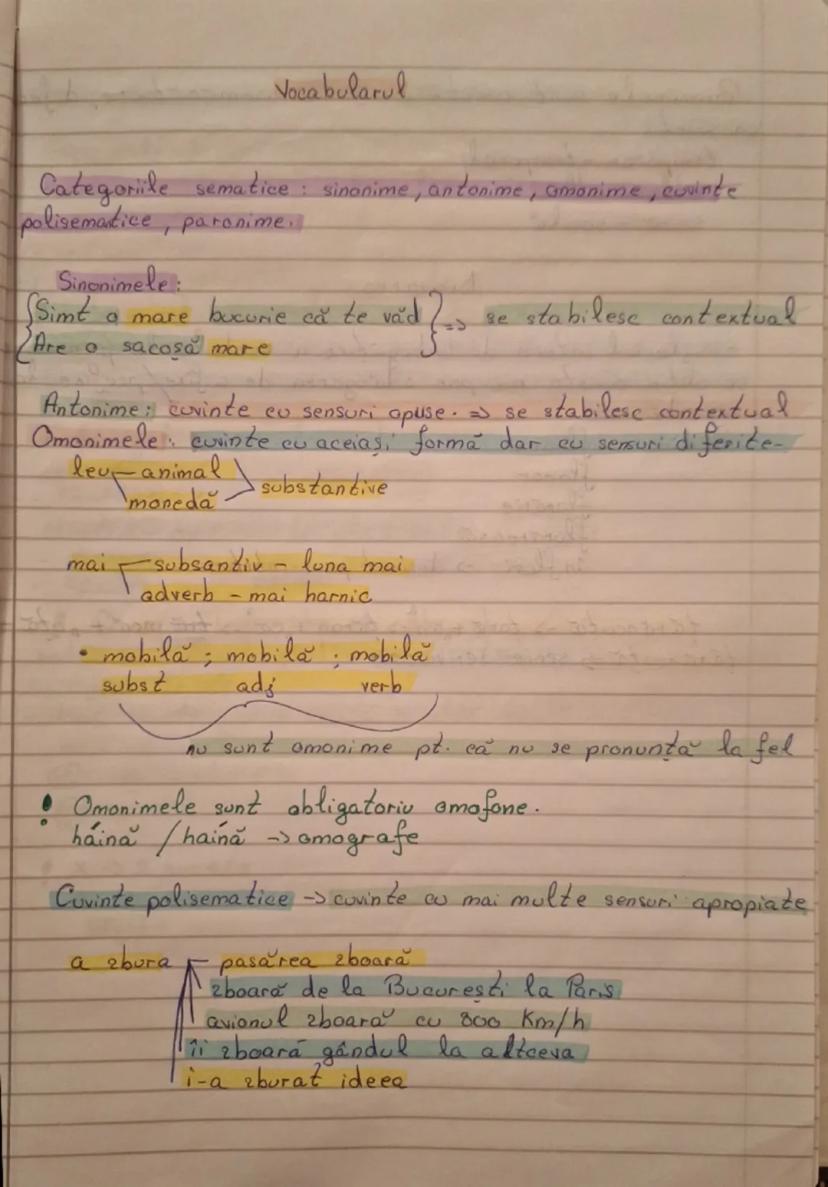 Vocabularul
Categoriile sematice : sinonime, antonime, omonime, cuvinte
polisematice, paronime.
Sinonimele:
Simt o mare bucurie că te văd => se stabilesc contextual
Are o sacoșă mare
Antonime: cuvinte cu sensuri opuse. => se stabilesc contextual
Omonimele: cuvinte cu aceiași formă dar cu sensuri diferite-
leu animal
monedă substantive
mai substantiv - luna mai
adverb - mai harnic
• mobilă ; mobilă ; mobilă
subst adj verb
nu sunt omonime pt. că nu se pronunță la fel
! Omonimele sunt obligatoriu omofone.
háină / haínă -> omografe
Cuvinte polisematice -> cuvinte cu mai multe sensuri apropiate
a zbura - pasărea zboară
zboară de la București la Paris
avionul zboară cu 800 Km/h
îi zboară gândul la altceva
i-a zburat ideea